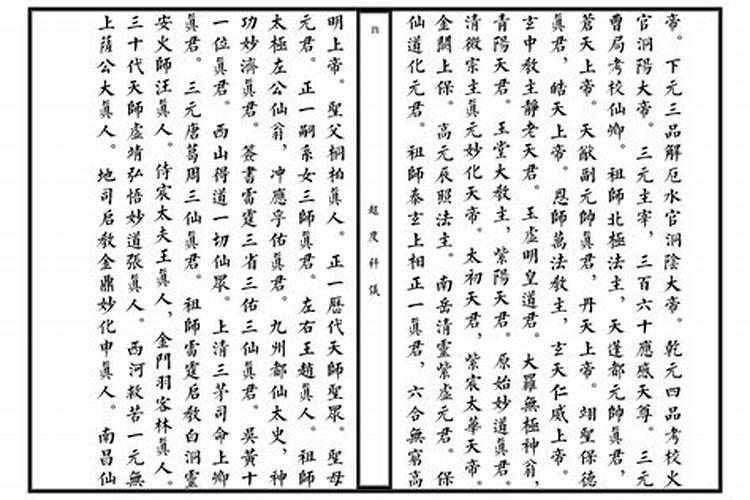 帝。下元三品解厄水官洞陰大帝。乾元四品考校火
官洞陽大帝。三元主宰,三百六十應感天尊。三元
曹局考校仙卿。祖師北極法主,天蓬都元帥真君,
蒼天上帝。天猷副元帥真君,丹天上帝。翊聖保德
真君,皓天上帝。恩師萬法教主,玄天仁威上帝。
玄中教主靜老天君。玉虛明皇道君。大羅無極神翁,
青陽天君。玉堂大教主,紫陽天君。原始妙道真君。
清微宗主真元妙化天帝。太初天君,紫宸太華天帝。
金闕上保。高元辰照法主。南岳清靈紫虛元君。保
仙道化元君。祖師泰玄上相正一真君,六合無窮高
四
超度科儀
明上帝。聖父桐柏真人。正一曆代天師聖眾。聖母
元君。正一嗣系女三師真君。左右王趙真人。祖師
太極左公仙翁,冲應孚佑真君。九州都仙太史,神
功妙濟真君。簽書雷霆三省三佑三仙真君。吳黃十
一位真君。西山得道一切仙眾。上清三茅司命上卿
真君。三元唐葛周三仙真君。祖師雷霆启教白洞靈
安火師汪真人。侍宸太夫王真人,金門羽客林真人。
三十代天師虛靖弘悟妙道張真人。西河救苦一元無
上薩公大真人。地司启教金鼎妙化申真人。南昌仙